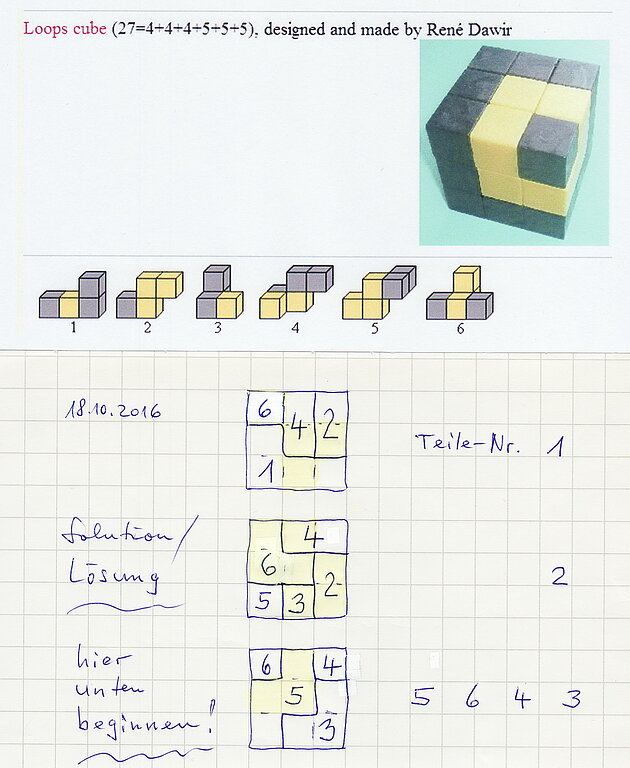 Loops cube (27=4+4+4+5+5+5), designed and made by René Dawir
1 2 3 4 5 6
18.10.2016
6 4 2
1
Teile-Nr. 1
Solution/
Lösung
4
6 2
5 3
2
hier
unten
beginnen!
6 4
5
3
5 6 4 3